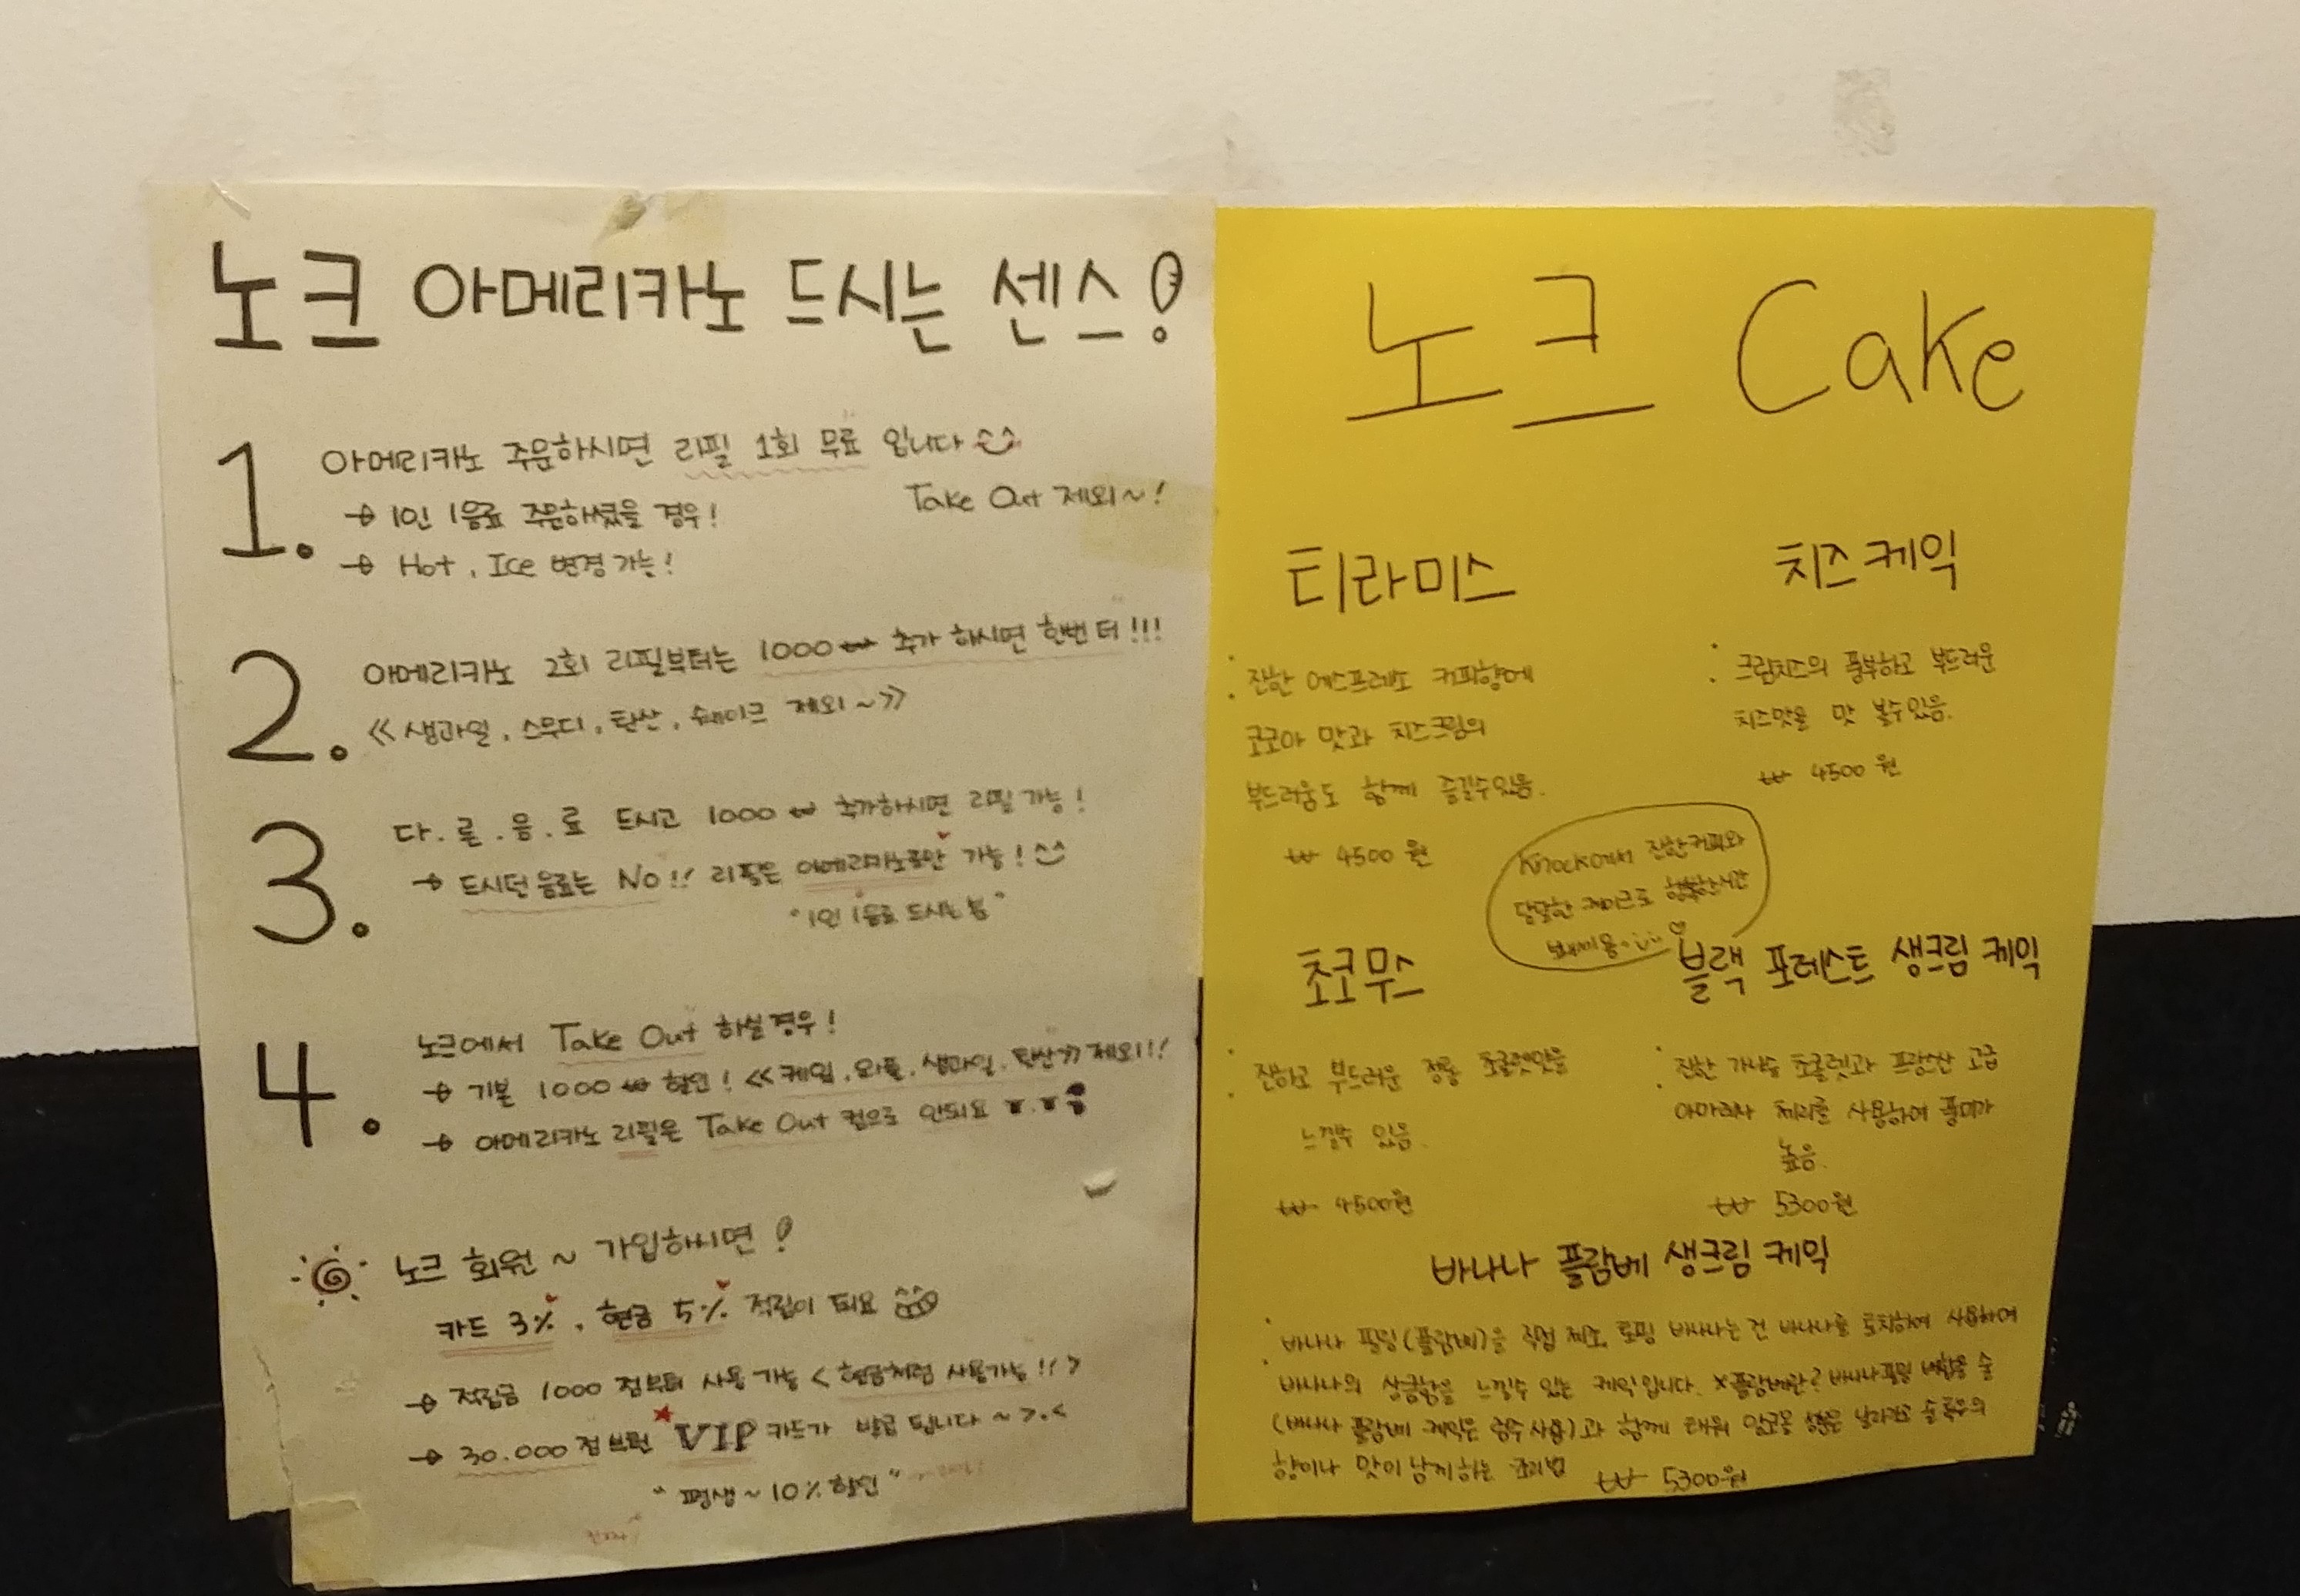 노크 아메리카노 드시는 센스!
1. 아메리카노 주문하시면 리필 1회 무료 입니다
Take Out 제외~!
→ 1인 1음료 주문하셨을 경우!
→ Hot, Ice 변경 가능!
2. 아메리카노 2회 리필부터는 1000₩ 추가 하시면 한번 더!!!
≪생과일, 스무디, 탄산, 쉐이크 제외~≫
3. 다.른.음.료 드시고 1000₩ 추가하시면 리필 가능!
→ 드시던 음료는 No!! 리필은 아메리카노로만 가능!
"1인 1음료 드시는 분"
4. 노크에서 Take Out 하실경우!
→ 기본 1000₩ 할인! ≪케익, 와플, 생과일, 탄산≫ 제외!!!
→ 아메리카노 리필은 Take Out 컵으로 안되요 ㅠ.ㅠ
노크 회원~ 가입하시면!
카드 3%, 현금 5% 적립이 되요
→ 적립금 1000점부터 사용 가능 <현금처럼 사용가능!!>
→ 30.000점 되면 VIP 카드가 발급 됩니다~ >.<
"평생~10% 할인"
노크 Cake
티라미스
: 진한 에스프레소 커피향에
코코아 맛과 치즈크림의
부드러움도 함께 즐길수있음.
₩ 4500원
치즈케익
: 크림치즈의 풍부하고 부드러운
치즈맛을 맛 볼수있음.
₩ 4500원
Knock에서 진한커피와
달달한 케이크로 행복한시간
보내세용
초코무스
: 진하고 부드러운 정통 초콜렛맛을
느낄수 있음.
₩ 4500원
블랙 포레스트 생크림 케익
: 진한 가나슈 초콜렛과 프랑스산 고급
아마레나 체리를 사용하여 풍미가
높음.
₩ 5300원
바나나 플람베 생크림 케익
: 바나나 필링(플람베)을 직접 제조, 토핑 바나나는 건 바나나를 토치하여 사용하여
바나나의 상큼함을 느낄수 있는 케익입니다. ※플람베란? 바나나필링 배합을 술
(바나나 플람베 케익은 럼주 사용)과 함께 태워 알코올 성분은 날리고 술 특유의
향이나 맛이 남게하는 조리법
₩ 5300원